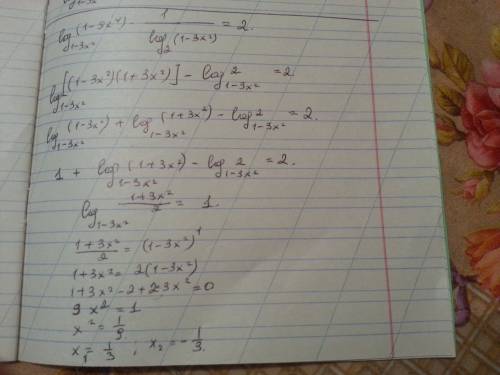 log_{1-3x²} (1-9x⁴) - 1/(log_2 (1-3x²)) = 2.
log_{1-3x²} [(1-3x²)(1+3x²)] - log_{1-3x²} 2 = 2.
log_{1-3x²} (1-3x²) + log_{1-3x²} (1+3x²) - log_{1-3x²} 2 = 2.
1 + log_{1-3x²} (1+3x²) - log_{1-3x²} 2 = 2.
log_{1-3x²} (1+3x²)/2 = 1.
(1+3x²)/2 = (1-3x²)¹
1+3x² = 2(1-3x²)
1+3x²-2+2·3x² = 0
9x² = 1
x² = 1/9.
x₁ = 1/3, x₂ = -1/3.